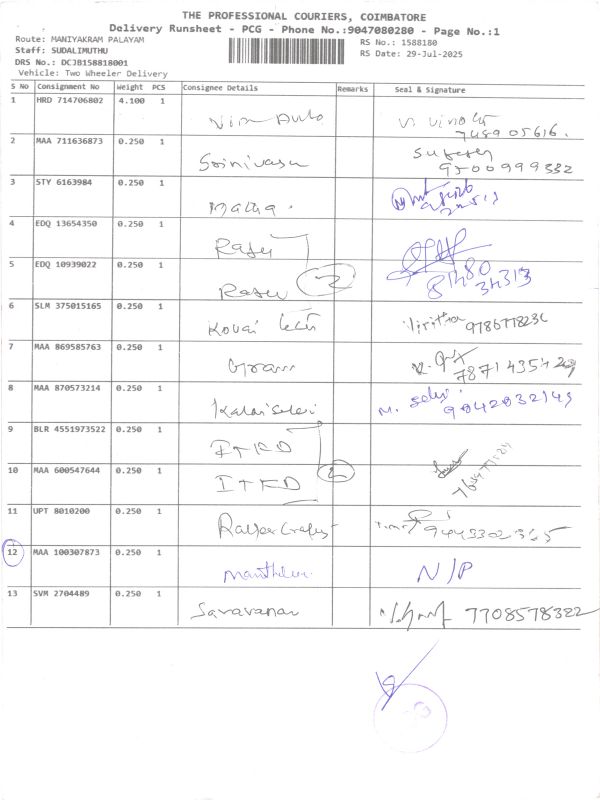 THE PROFESSIONAL COURIERS, COIMBATORE
Delivery Runsheet - PCG - Phone No.:9047080280 - Page No.:1
Route: MANIYAKRAM PALAYAM
RS No.: 1588180
Staff: SUDALIMUTHU
RS Date: 29-Jul-2025
DRS No.: DCJB158818001
Vehicle: Two Wheeler Delivery
S No Consignment No Weight PCS Consignee Details Remarks Seal & Signature
1 HRD 714706802 4.100 1 Auto
2 MAA 711636873 0.250 1 Srinivasa 9500999332
3 STY 6163984 0.250 1 Malha.
4 EDQ 13654350 0.250 1
5 EDQ 10939022 0.250 1 2 81480 34313
6 SLM 375015165 0.250 1 Kovai
7 MAA 869585763 0.250 1 Gram
8 MAA 870573214 0.250 1 Kalaiselvi M. Selvi 9042032149
9 BLR 4551973522 0.250 1
10 MAA 600547644 0.250 1 2
11 UPT 8010200 0.250 1
12 MAA 100307873 0.250 1 N/P
13 SVM 2704489 0.250 1 Saravanan 7708578322